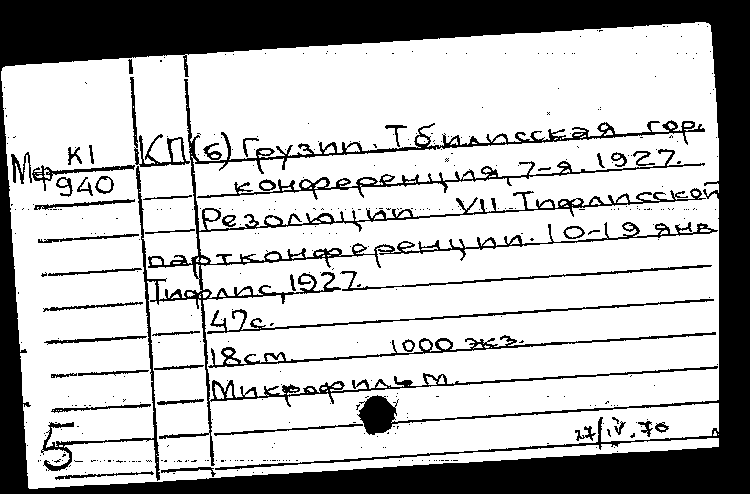 КП(б) Грузии. Тбилисская гор.
Мф К1/940
конференция, 7-я. 1927.
Резолюции VII Тифлисской
партконференции. 10-19 янв
Тифлис, 1927.
47с.
18см. 1000 экз.
Микрофильм.
27/IV.70
5